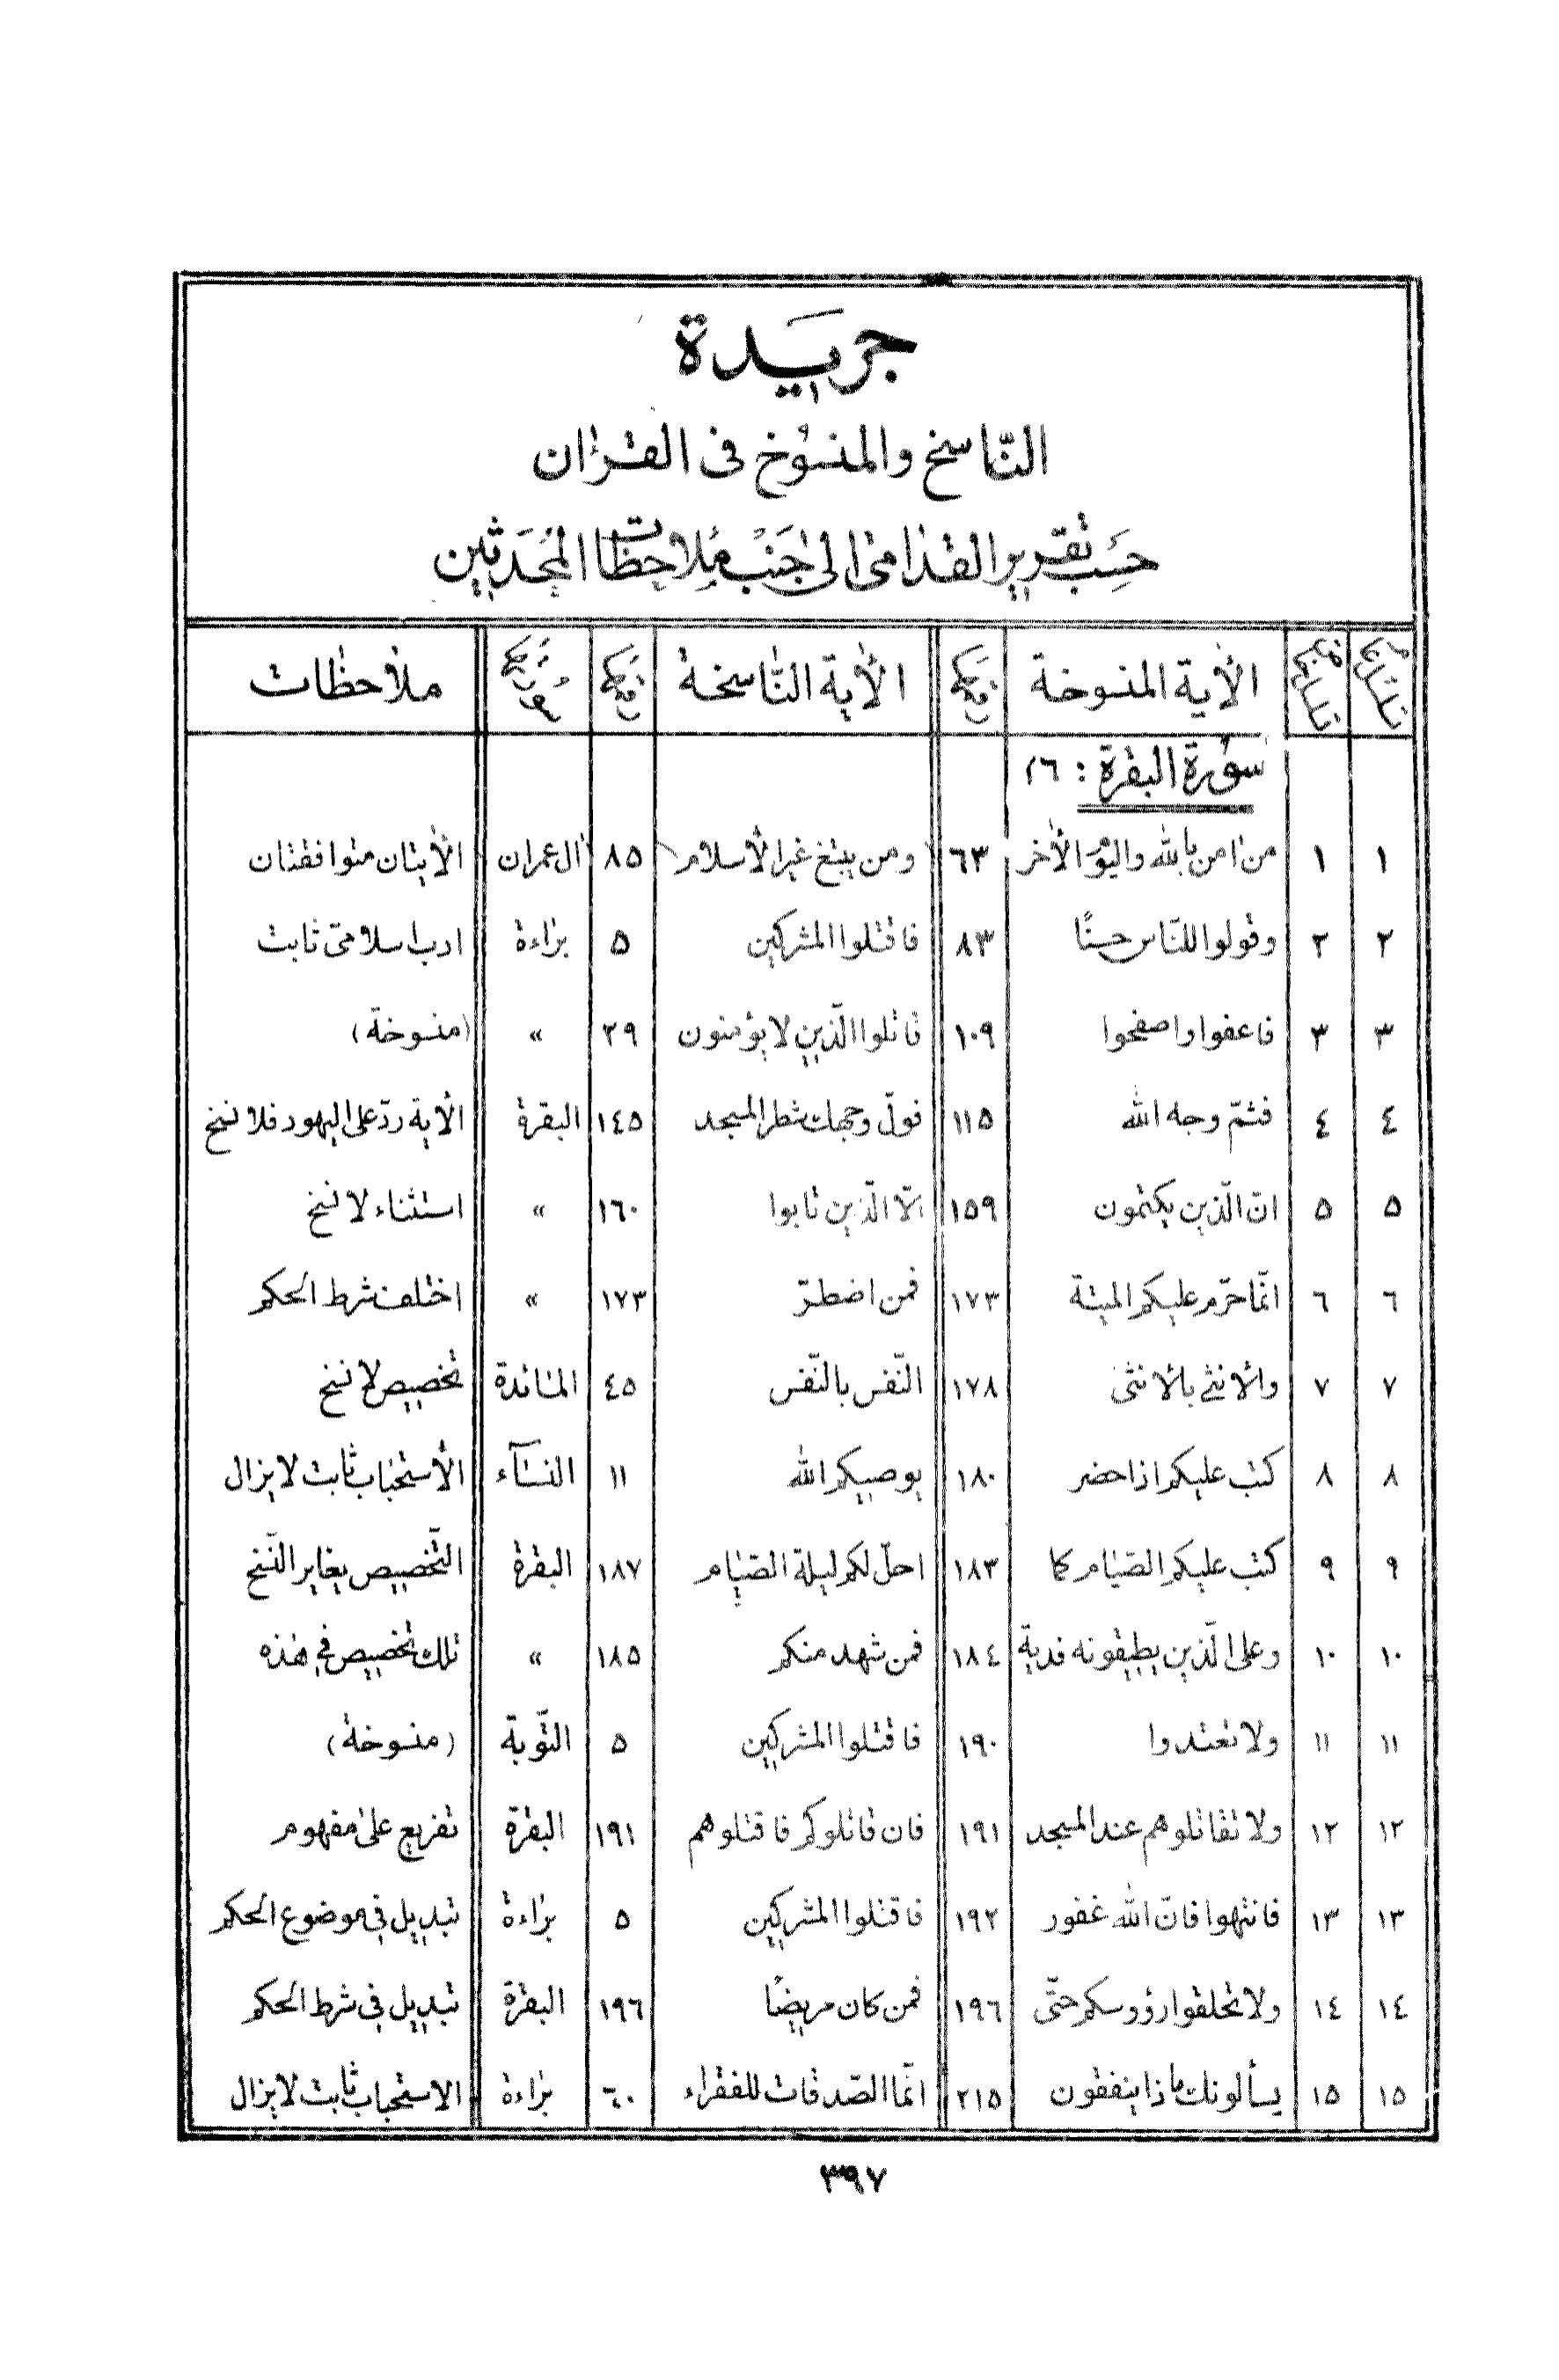 جريدة
النّاسخ والمنسوخ فى القرءان
حسب تقرير القدامى الى جنب ملاحظات المحدثين
الآية المنسوخة رقمها الآية النّاسخة رقمها سورتها ملاحظات
سورة البقرة : ٢٦
١ ١ من آمن بالله واليوم الآخر ٦٣ ومن يبتغ غير الاسلام ٨٥ آل عمران الآيتان متوافقتان
٢ ٢ وقولوا للنّاس حسنًا ٨٣ فاقتلوا المشركين ٥ براءة ادب اسلامىّ ثابت
٣ ٣ فاعفوا واصفحوا ١٠٩ قاتلوا الّذين لا يؤمنون ٢٩ » (منسوخة)
٤ ٤ فثمّ وجه الله ١١٥ فولّ وجهك شطر المسجد ١٤٥ البقرة الآية ردّ على اليهود فلا نسخ
٥ ٥ انّ الّذين يكتمون ١٥٩ الّا الّذين تابوا ١٦٠ » استثناء لا نسخ
٦ ٦ انّما حرّم عليكم الميتة ١٧٣ فمن اضطرّ ١٧٣ » اختلف شرط الحكم
٧ ٧ والأنثى بالأنثى ١٧٨ النّفس بالنّفس ٤٥ المائدة تخصيص لا نسخ
٨ ٨ كتب عليكم اذا حضر ١٨٠ يوصيكم الله ١١ النساء الأستحباب ثابت لا يزال
٩ ٩ كتب عليكم الصّيام كما ١٨٣ احلّ لكم ليلة الصّيام ١٨٧ البقرة التّخصيص يغاير النّسخ
١٠ ١٠ وعلى الّذين يطيقونه فدية ١٨٤ فمن شهد منكم ١٨٥ » تلك تخصيص فى هذه
١١ ١١ ولا تعتدوا ١٩٠ فاقتلوا المشركين ٥ التّوبة (منسوخة)
١٢ ١٢ ولا تقاتلوهم عند المسجد ١٩١ فان قاتلوكم فاقتلوهم ١٩١ البقرة تفريع على مفهوم
١٣ ١٣ فانتهوا فانّ الله غفور ١٩٢ فاقتلوا المشركين ٥ براءة تبديل فى موضوع الحكم
١٤ ١٤ ولا تحلقوا رؤوسكم حتّى ١٩٦ فمن كان مريضًا ١٩٦ البقرة تبديل فى شرط الحكم
١٥ ١٥ يسألونك ماذا ينفقون ٢١٥ انّما الصّدقات للفقراء ٦٠ براءة الاستحباب ثابت لا يزال
٣٩٧